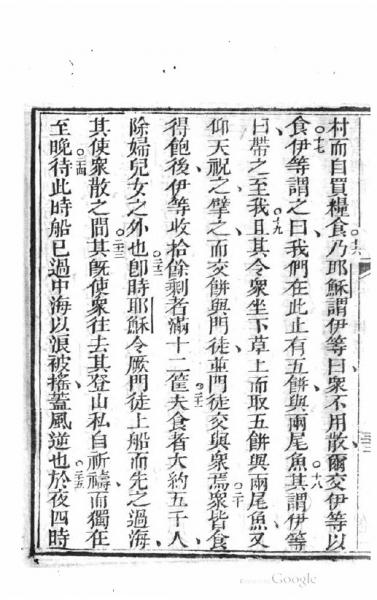 村而自買糧食乃耶穌謂伊等曰衆不用散爾交伊等以
食伊等謂之曰我們在此止有五餅與兩尾魚其謂伊等
曰帶之至我且其令衆坐下草上而取五餅與兩尾魚又
仰天祝之擘之而交餅與門徒並門徒交與衆焉衆皆食
得飽後伊等收拾餘剩者滿十二筐夫食者大約五千人
除婦兒女之外也卽時耶穌令厥門徒上船而先之過海
其使衆散之間其旣使衆往去其登山私自祈禱而獨在
至晚待此時船已過中海以浪被搖蓋風逆也於夜四時
Google